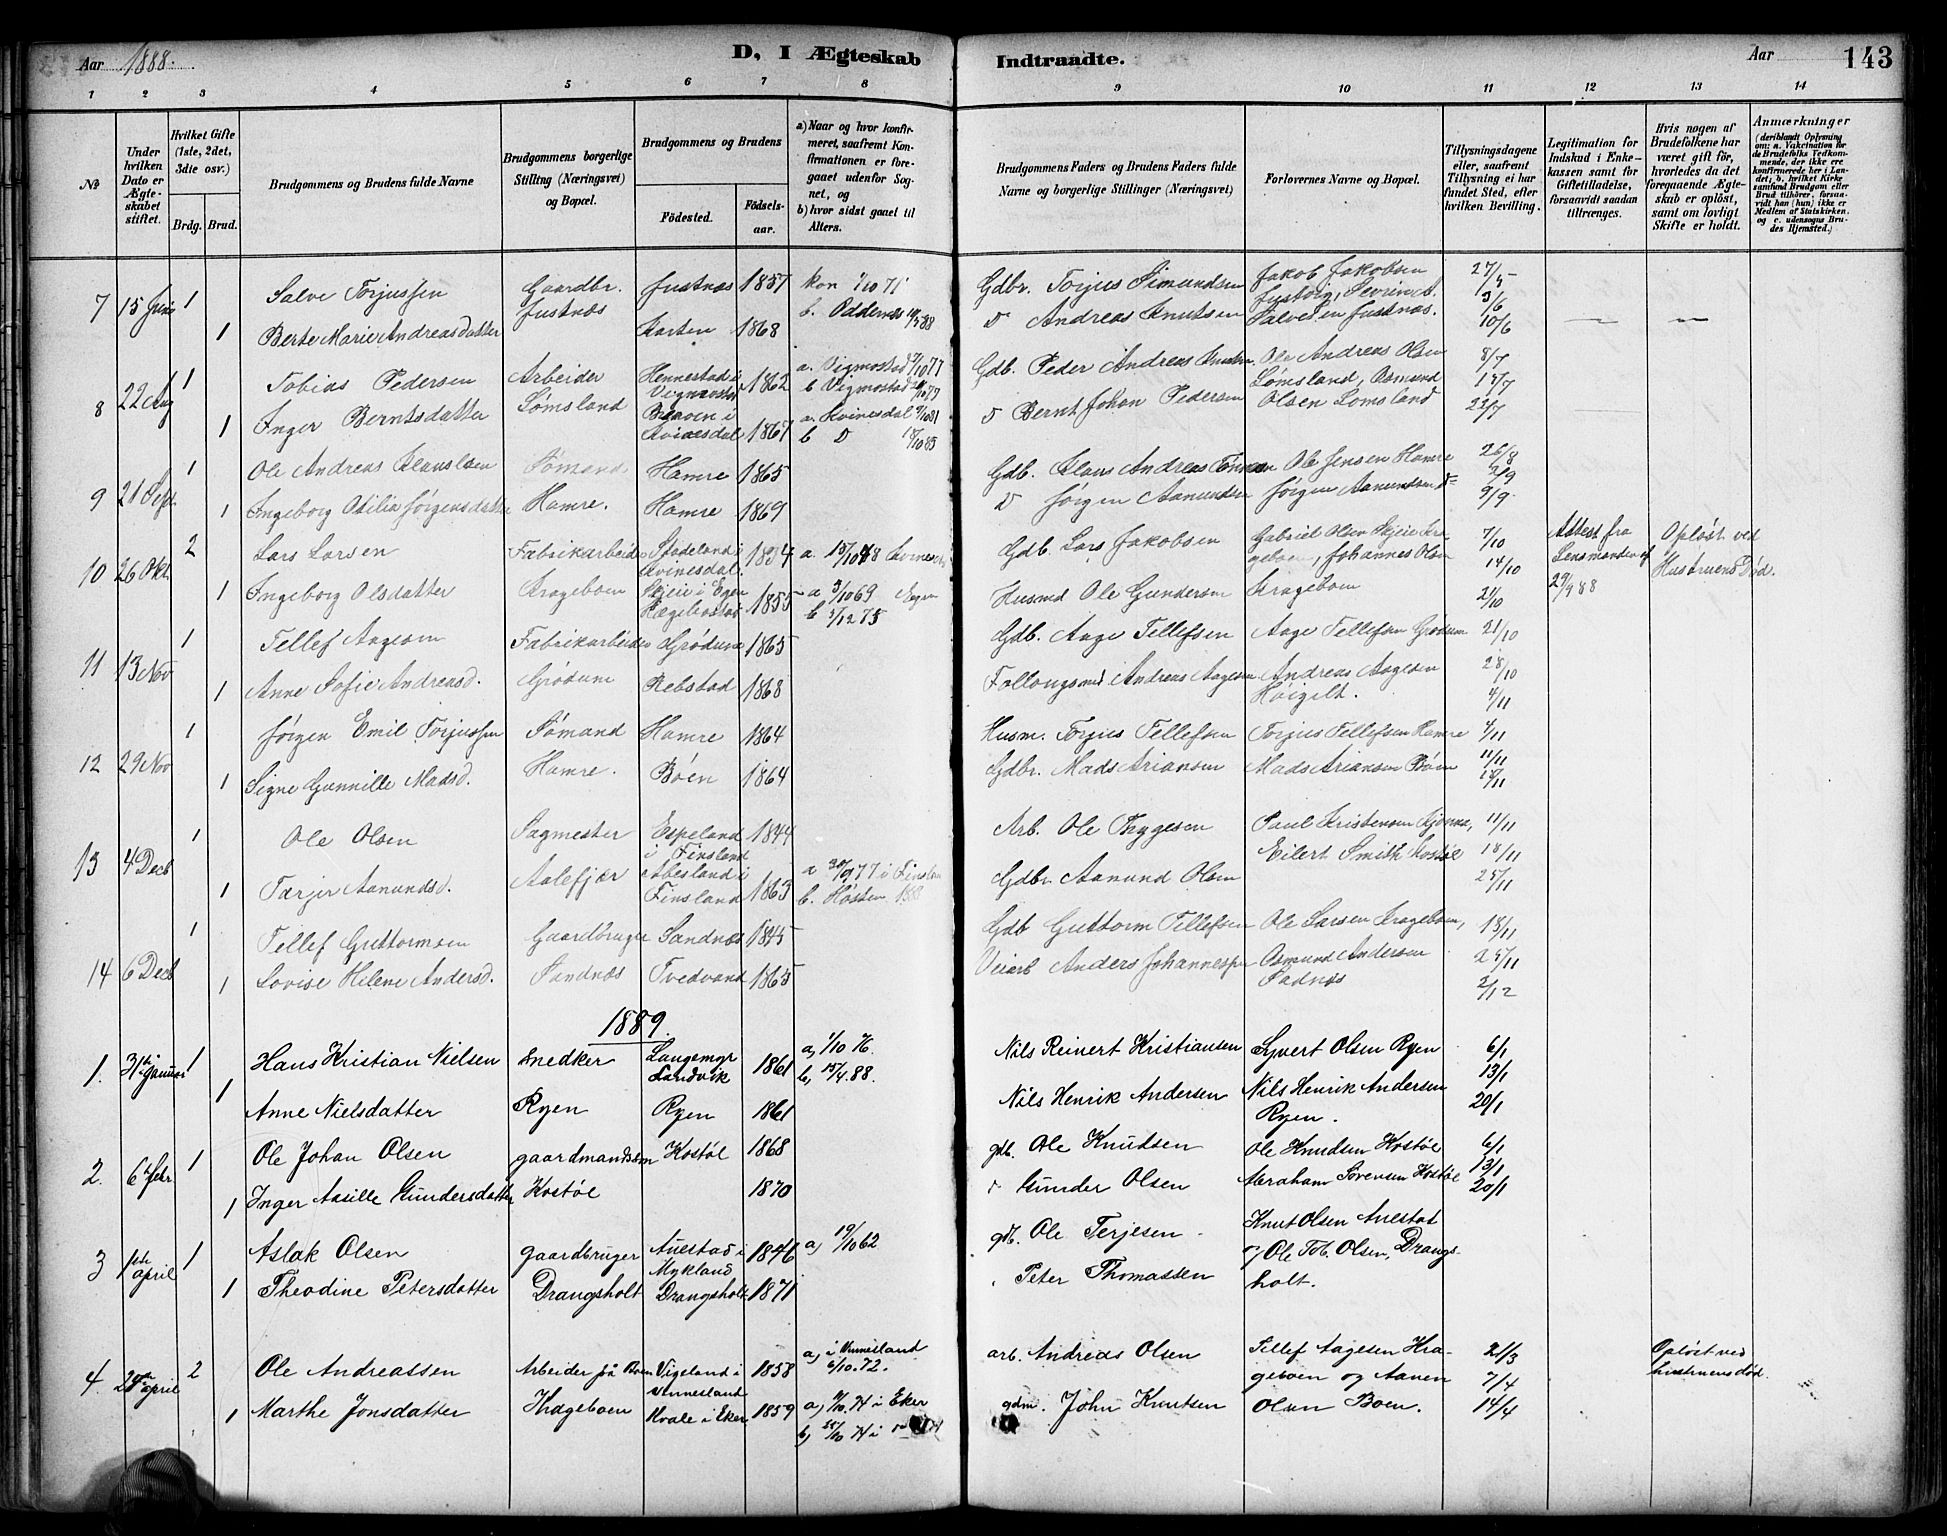 Aar 1888. D, I Ægteskab Indtraadte. Aar 143
1 2 3 4 5 6 7 8 9 10 11 12 13 14
№
Under hvilken Dato er Ægteskabet stiftet.
Hvilket Gifte (1ste, 2det, 3die osv.)
Brdg. Brud.
Brudgommens og Brudens fulde Navne
Brudgommens borgerlige Stilling (Næringsvei) og Bopæl.
Brudgommens og Brudens
Födested. Födsels-aar.
a) Naar og hvor konfirmeret, saafremt Konfirmationen er foregaaet udenfor Sognet, og
b) hvor sidst gaaet til Alters.
Brudgommens Faders og Brudens Faders fulde Navne og borgerlige Stillinger (Næringsvei)
Forlovernes Navne og Bopæl.
Tillysningsdagene eller, saafremt Tillysning ei har fundet Sted, efter hvilken Bevilling.
Legitimation for Indskud i Enkekassen samt for Giftetilladelse, forsaavidt saadan tiltrænges.
Hvis nogen af Brudefolkene har været gift för, hvorledes da det foregaaende Ægteskab er oplöst, samt om lovligt Skifte er holdt.
Anmærkninger (deriblandt Oplysning om: a. Vakcination for de Brudefolks Vedkommende, der ikke ere konfirmerede her i Landet; b. hvilket Kirkesamfund Brudgom eller Brud tilhörer, forsaavidt han (hun) ikke er Medlem af Statskirken, og c. udensogns Brudes Hjemsted.)
7 15 Juni 1 Salve Torjussen Gaardbr. Justnæs Justnæs 1857 kon 1/10 71 Gdbr. Torjus Simundsen Jakob Jakobsen 27/5
1 Berte Marie Andreasdatter Aarten 1868 b. Oddernes D Andreas Knutsen Salvesen Justnæs. 3/6 10/6 — —
8 22 Aug 1 Tobias Pedersen Arbeider Hennestad i Vigmostad 1862 a. Vigmostad b. Vigmostad Gdb. Peder Andreas Knutsen Ole Andreas Olsen 8/7
1 Inger Berntsdatter Lømsland i Kvinesdal 1867 a. Kvinesdal b D D Bernt Johan Pedersen Lømsland, Osmund Olsen Lomsland 15/7 22/7
9 21 Sept. 1 Ole Andreas Klausen Sømand Hamre 1865 Gdb. Klaus Andreas Ole Jensen Hamre 26/8 2/9
1 Ingeborg Otilia Jørgensdatter Hamre. Hamre 1869 D Jørgen Aanundsen Jørgen Aanundsen D 9/9
10 26 Okt. 2 Lars Larsen Fabrikarbeider i Kvinesdal. 1854 a. Gdb. Lars Jakobsen Gabriel Olsen Skjeie Krageboen, Johannes Olsen 7/10 14/10 Attest fra Lensmanden af 29/9 88 Opløst ved Hustruens Død.
1 Ingeborg Olsdatter Krageboen Skjeie i Egen Hægebostad 1855 a 3/10 69 b 5/12 75 Husmd Ole Gundersen Krageboen 21/10
11 13 Nov 1 Tellef Aagesen Fabrikarbeider Grødum 1865 Gdb. Aage Tellefsen Aage Tellefsen Grødum 21/10
1 Anne Sofie Andreasd. Grødum Rebstad 1868 Andreas Aagesen Andreas Aagesen 28/10 4/11
12 29 Nov 1 Jørgen Emil Torjussen Sømand Hamre 1864 Husm. Torjus Tellefsen Torjus Tellefsen Hamre 4/11
1 Signe Gunnille Madsd. Hamre. Bøen 1864 Gdbr. Mads Ariansen Mads Ariansen Bøen 11/11 18/11
13 4 Decb 1 Ole Olsen Sagmester Espeland i Finsland 1844 Arb. Ole Thygesen Paul Kristensen 11/11
1 Tarjer Aanundsd. Aalefjær Abesland i Finsland 1863 a 77 i Finsland b. Høsten 1888 Gdbr. Aanund Olsen Eilert Smith Kostøl 18/11 25/11
14 6 Decb 1 Tellef Guttormsen Gaardbruger Sandnæs 1845 Gdb Guttorm Tellefsen Ole Larsen Krageboen, 18/11
1 Lovise Helene Andersd. Sandnæs Tvedvand 1865 Veiarb Anders Johannessen Osmund Andersen Sadnæs 25/11 2/12
1889.
1. 31te Januar 1 Hans Kristian Nielsen Snedker Langemyr Landvik 1861 a, 1/10 76. b, 15/4. 88. Nils Reinert Kristiansen Syvert Olsen Ryen 6/1 13/1
1 Anne Nielsdatter Ryen Ryen 1861 Nils Henrik Andersen Nils Henrik Andersen Ryen. 20/1
2. 6te Febr. 1 Ole Johan Olsen gaardmandssøn Kostøl 1868 gdb. Ole Knudsen Ole Knudsen Kostøl 6/1
1 Inger Aasille Gundersdatter Kostøl 1870 Gunder Olsen Abraham Sørensen Kostøl 13/1 20/1
3 1te april 1 Aslak Olsen gaardbruger Auestad i Mykland 1846 a, 19/10 62 gdb. Ole Terjesen Knut Olsen Auestad
1 Theodine Petersdatter Drangsholt Drangsholt 1871 Peter Thomassen og Ole Tob. Olsen, Drangsholt.
4. april 2 Ole Andreassen Arbeider på Boen Vigeland i Vennesland 1858 a, i Vennesland 6/10. 72. arb. Andreas Olsen Tellef Aagesen Krageboen og Aanen 21/3 7/4 Opløst ved hustruens død.
1 Marthe Jonsdatter Krageboen Kvale i Eker 1859 a, 74 i Eker b, gdm. John Knutsen Olsen Boen. 14/4